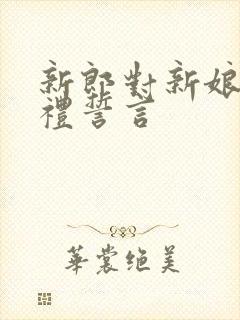 新郎對新娘
禮誓言
華裳绝美